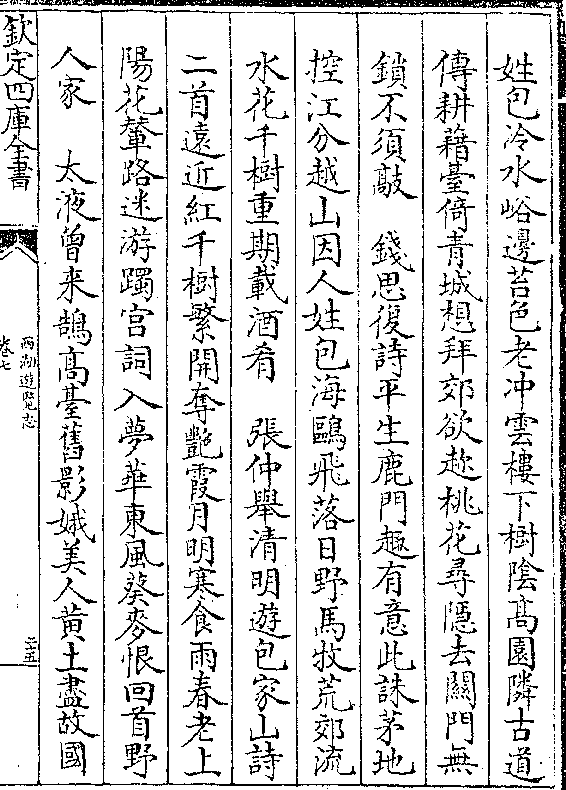 姓包冷水峪邊苔色老冲雲樓下樹陰髙園隣古道
傳耕藉臺倚青城想拜郊欲趂桃花尋隠去闗門無
鎖不須敲　錢思復詩平生鹿門趣有意此誅茅地
控江分越山因人姓包海鷗飛落日野馬牧荒郊流
水花千樹重期載酒肴　張仲舉清明遊包家山詩
二首遠近紅千樹繁開奪艶霞月明寒食雨春老上
陽花輦路迷游躅宫詞入夢華東風葵麥恨回首野
人家　太液曾来鵠髙臺舊影娥美人黄土盡故國
欽定四庫全書
西湖遊覽志
卷七
二五